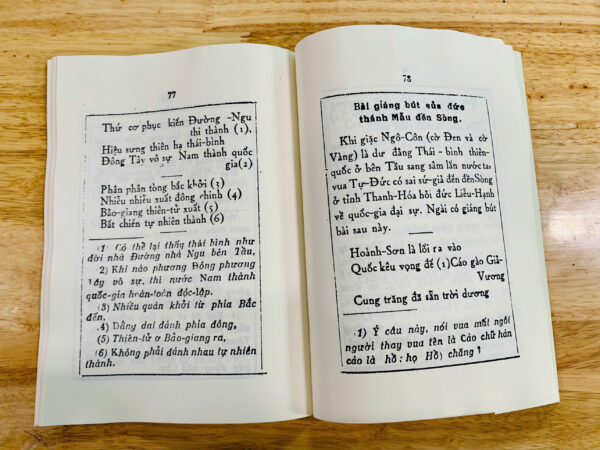 77
Thử cơ phục kiến Đường-Ngu
thi thành (1),
Hiệu sưng thiên hạ thái-bình
Đông Tây vô sự Nam thành quốc
gia(2)
Phân phân tòng bắc khởi (3)
Nhiễu nhiễu xuất đông chinh (4)
Bảo-giang thiên-tử xuất (5)
Bất chiến tự nhiên thành (6)
(1) Có thể lại thấy thái bình như
đời nhà Đường nhà Ngu bên Tầu,
2) Khi nào phương Đông phương
Tây vô sự, thì nước Nam thành
quốc-gia hoàn-toàn độc-lập.
(3) Nhiều quân khởi từ phía Bắc
đến.
(4) Dằng dai đánh phía đông,
(5) Thiên-tử ở Bảo-giang ra,
(6) Không phải đánh nhau tự nhiên
thành.
78
Bài giáng bút của đức
thánh Mẫu đền Sòng.
Khi giặc Ngô-Côn (cờ Đen và cờ
Vàng) là dư đảng Thái-bình thiên-
quốc ở bên Tầu sang xâm lấn nước ta,
vua Tự-Đức có sai sứ-giả đến đền Sòng
ở tỉnh Thanh-Hóa hỏi đức Liễu-Hạnh
về quốc-gia đại sự. Ngài có giáng bút
bài sau này.
Hoành-Sơn là lối ra vào
Quốc kêu vọng đế (1) Cáo gào Già-
Vương
Cung trăng đã sẵn trời dương
1) Ý câu này, nói vua mất ngôi
người thay vua tên là Cáo chữ hán
cáo là hồ: họ Hồ) chăng ?